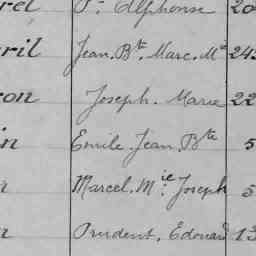 rel P. Alphonse 20
ril Jean. Bte. Marc. Me 24
on Joseph. Marie 22
in Emile. Jean. Bte 5
Marcel. Mie. Joseph 5
Prudent. Edouard 13